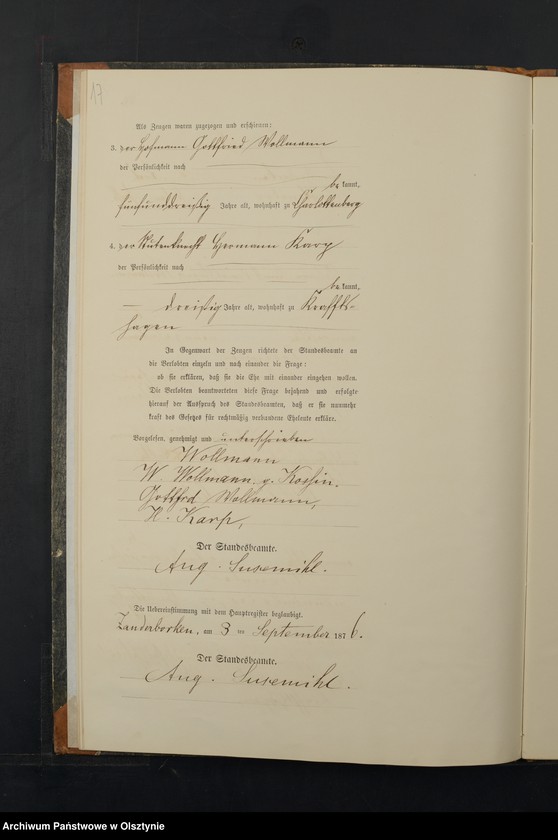 17
Als Zeugen waren zugezogen und erschienen:
3. der Hofmann Gottfried Wollmann
der Persönlichkeit nach
be kannt,
fünfunddreißig Jahre alt, wohnhaft zu Charlottenberg
4. der Hermann Karp
der Persönlichkeit nach
be kannt,
dreißig Jahre alt, wohnhaft zu Kraffts-
hagen
In Gegenwart der Zeugen richtete der Standesbeamte an
die Verlobten einzeln und nach einander die Frage:
ob sie erklären, daß sie die Ehe mit einander eingehen wollen.
Die Verlobten beantworteten diese Frage bejahend und erfolgte
hierauf der Ausspruch des Standesbeamten, daß er sie nunmehr
kraft des Gesetzes für rechtmäßig verbundene Eheleute erkläre.
Vorgelesen, genehmigt und unterschrieben
Wollmann
W. Wollmann g. Kossin.
Gottfrd Wollmann,
H. Karp,
Der Standesbeamte.
Aug. Susemihl.
Die Uebereinstimmung mit dem Hauptregister beglaubigt.
am 3 ten September 1876.
Der Standesbeamte.
Aug. Susemihl.
Archiwum Państwowe w Olsztynie